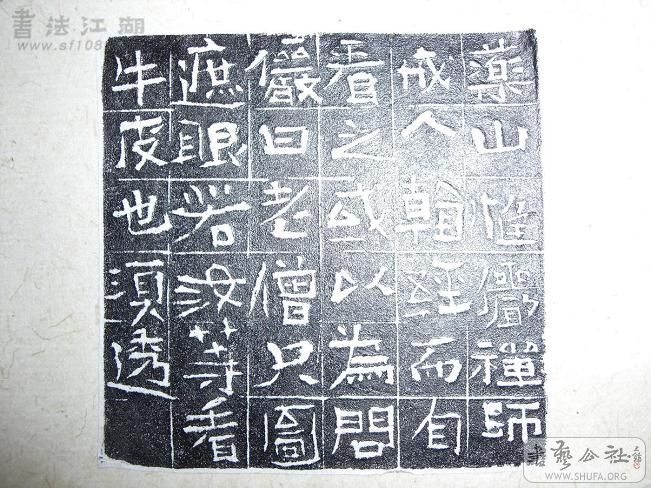 藥山惟儼禪師
戒人翰經而自
看之或以為問
儼曰老僧只圖
遮眼若汝等看
牛皮也須透
書法江湖
www.sf108
書藝公社
WWW.SHUFA.ORG